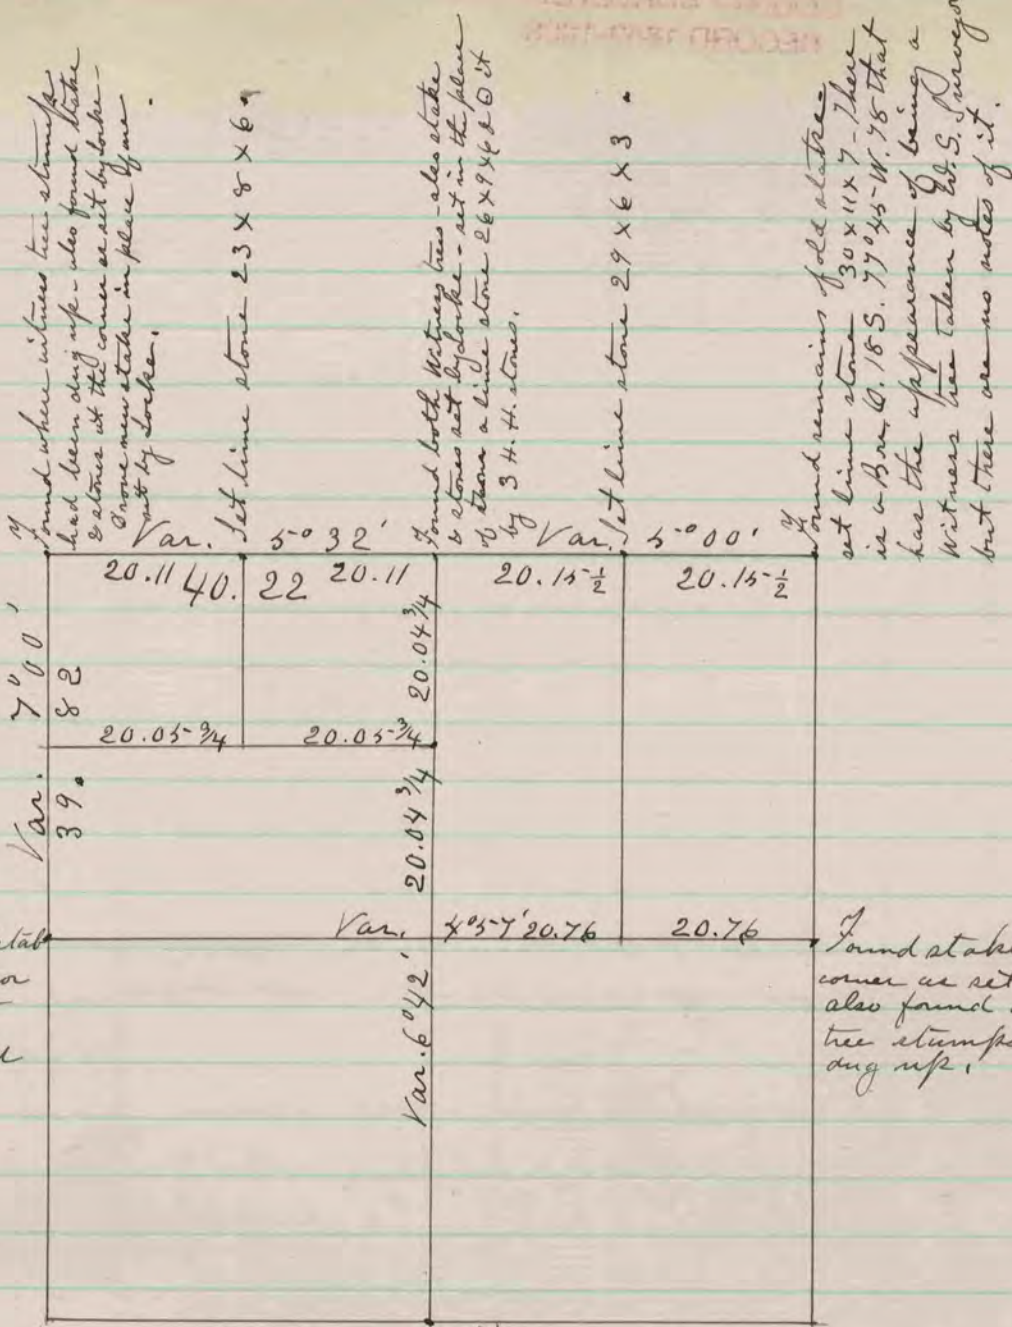 Found where witness tree stumps
had been dug up - also found stake
& stones at the corner as set by Locke -
Drove new stake in place of one
set by Locke.
Set lime stone 23 X 8 X 6.
Found both Witness trees - also stake
& stones set by Locke - set in the place
of them a lime stone 26 X 9 X 6 &
by 3 H. H. stones.
Set lime stone 29 X 6 X 3
Found remains of old stake -
set lime stone 30 X 11 X 7 - There
is a Br. O. 18 S. 77° 45' W. 78 that
has the appearance of being a
Witness tree taken by U.S. Surveyor
but there are no notes of it.
Var. 5° 32' Var. 5° 00'
20.11 40.22 20.11 20.15 ½ 20.15 ½
Var. 7° 00'
39.82
20.04 ¾
20.05 ¾ 20.05 ¾
20.04 ¾
Var. 4° 57' 20.76 20.76
Var. 6° 42'
or
Found stake
corner as set
also found
tree stumps
dug up.